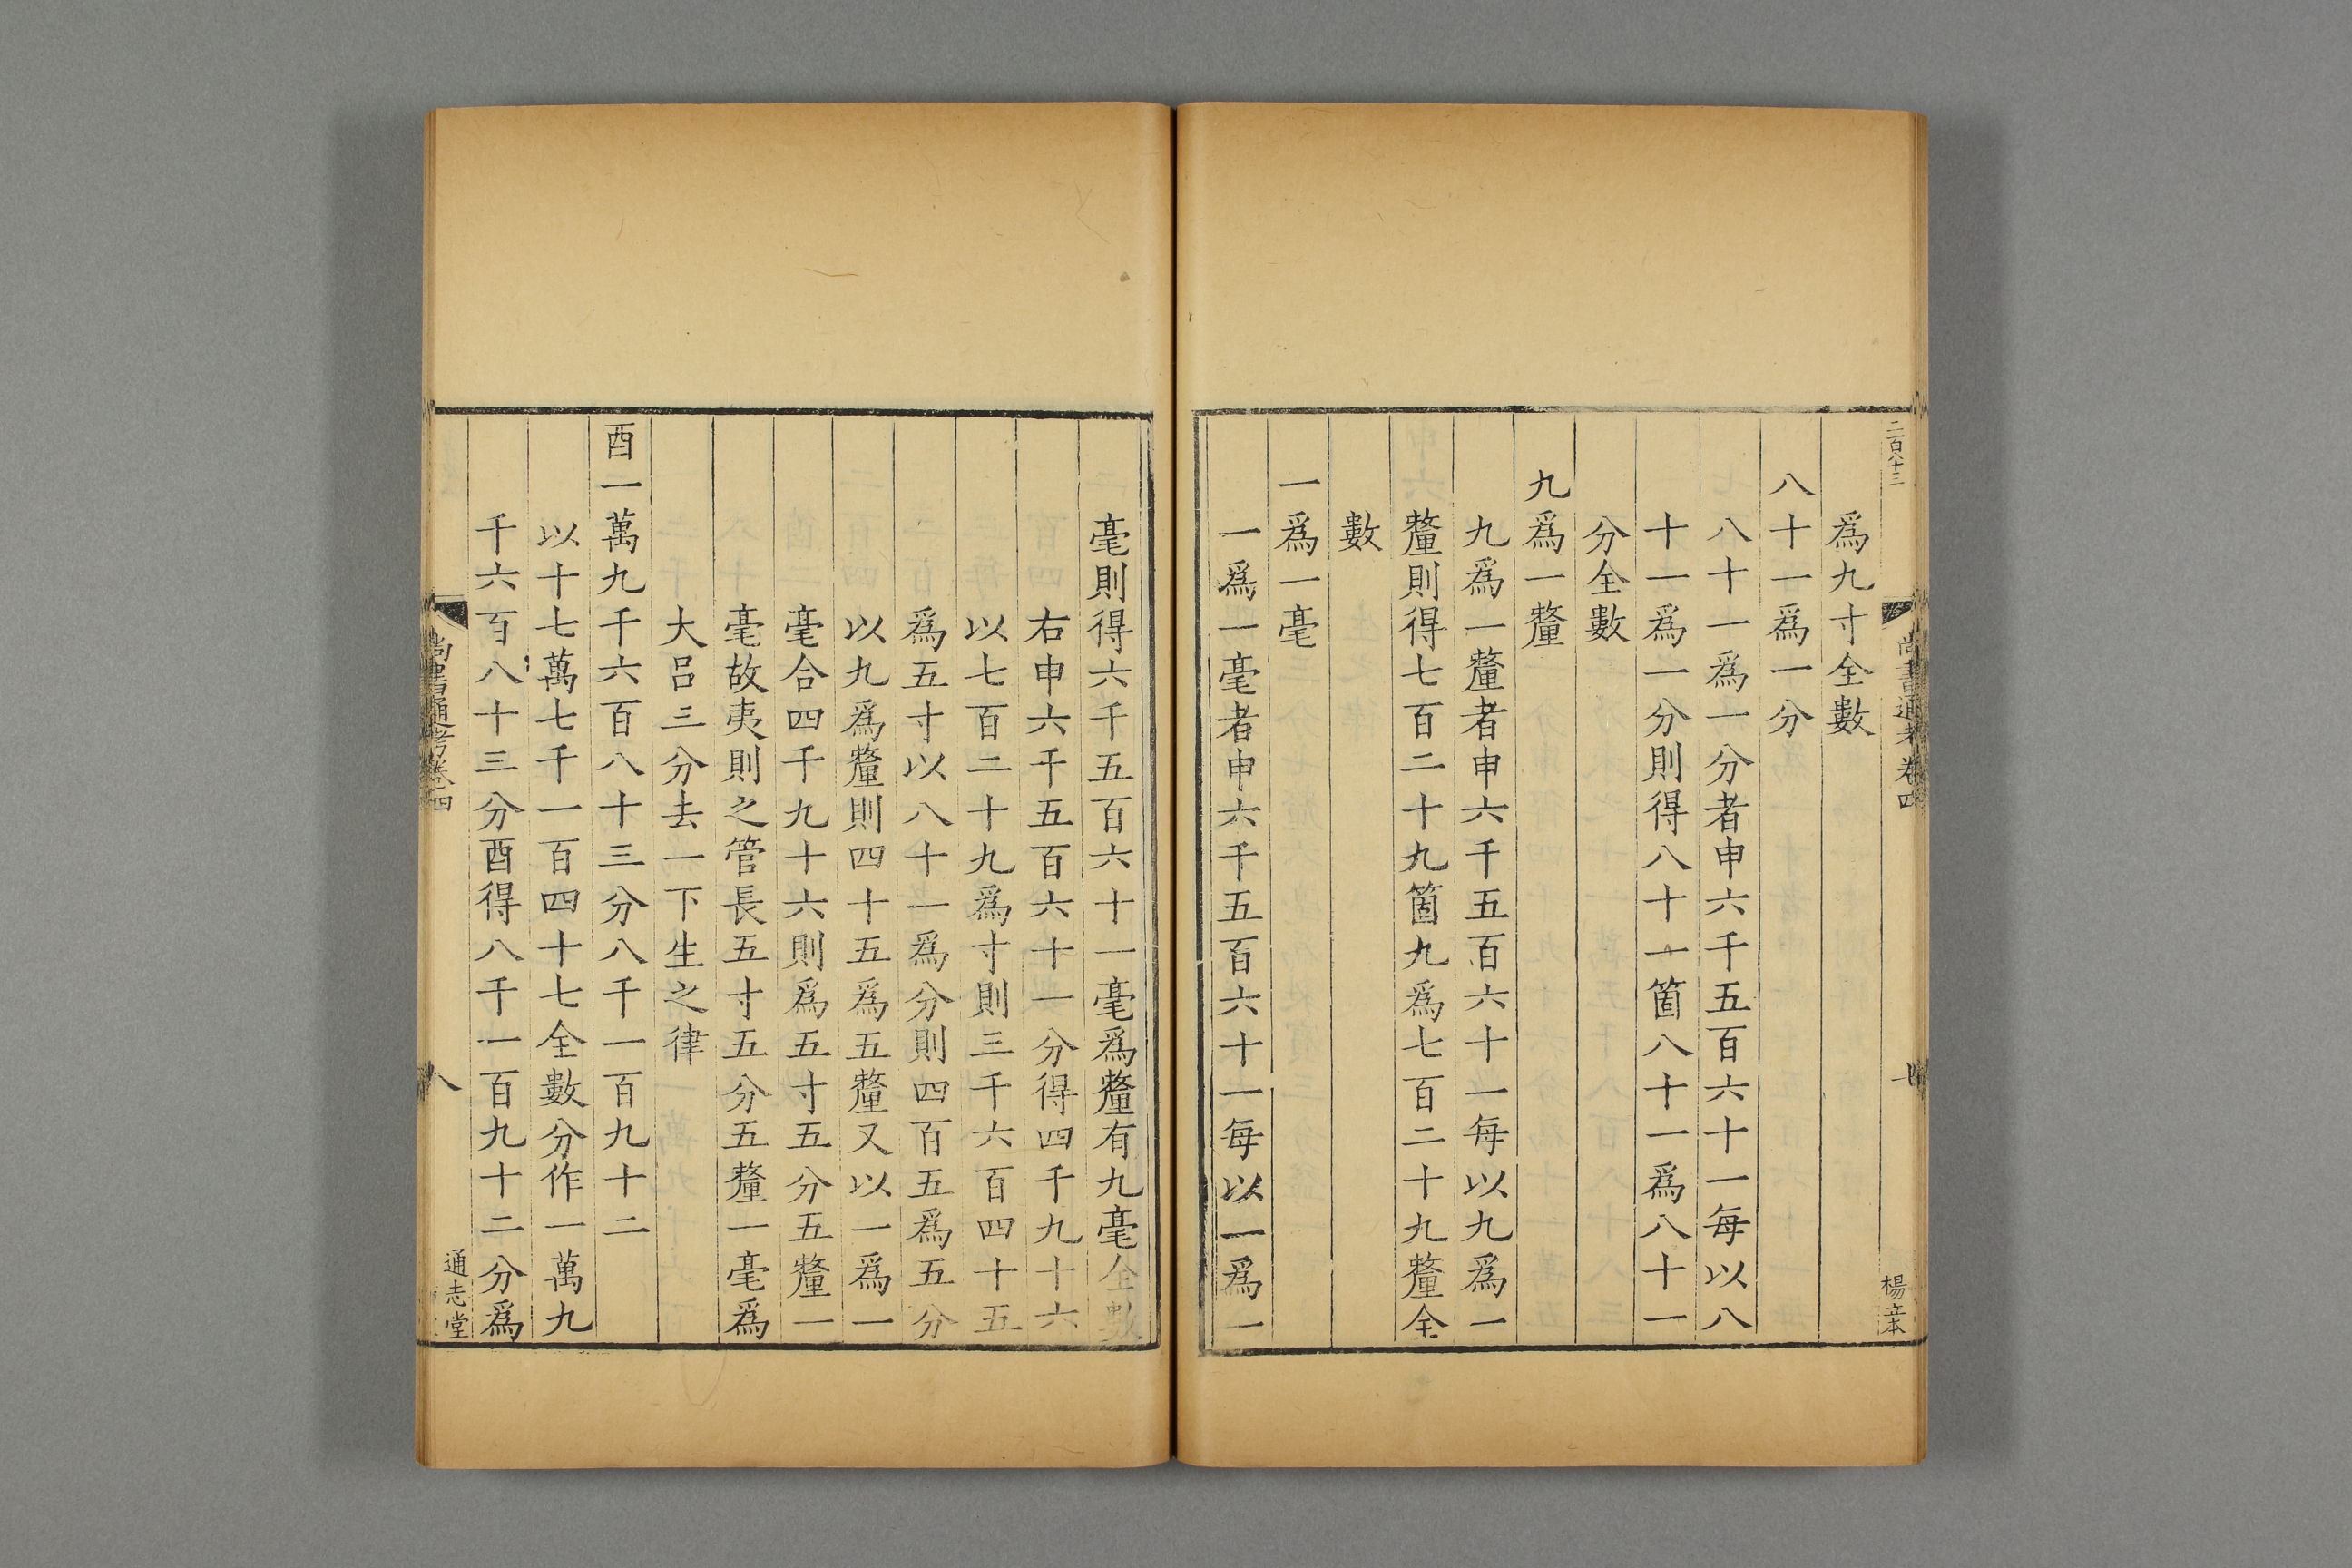 二百八十三
尚書通考卷四
楊立本
爲九寸全數
八十一爲一分
八十一爲一分者申六千五百六十一每以八
十一爲一分則得八十一箇八十一爲八十一
分全數
九爲一釐
九爲一釐者申六千五百六十一每以九爲一
釐則得七百二十九箇九爲七百二十九釐全
數
一爲一毫
一爲一毫者申六千五百六十一每以一爲一
毫則得六千五百六十一毫爲釐有九毫全數
右申六千五百六十一分得四千九十六
以七百二十九爲寸則三千六百四十五
爲五寸以八十一爲分則四百五爲五分
以九爲釐則四十五爲五釐又以一爲一
毫合四千九十六則爲五寸五分五釐一
毫故夷則之管長五寸五分五釐一毫爲
大呂三分去一下生之律
酉一萬九千六百八十三分八千一百九十二
以十七萬七千一百四十七全數分作一萬九
千六百八十三分酉得八千一百九十二分爲
尚書通考卷四
八
通志堂